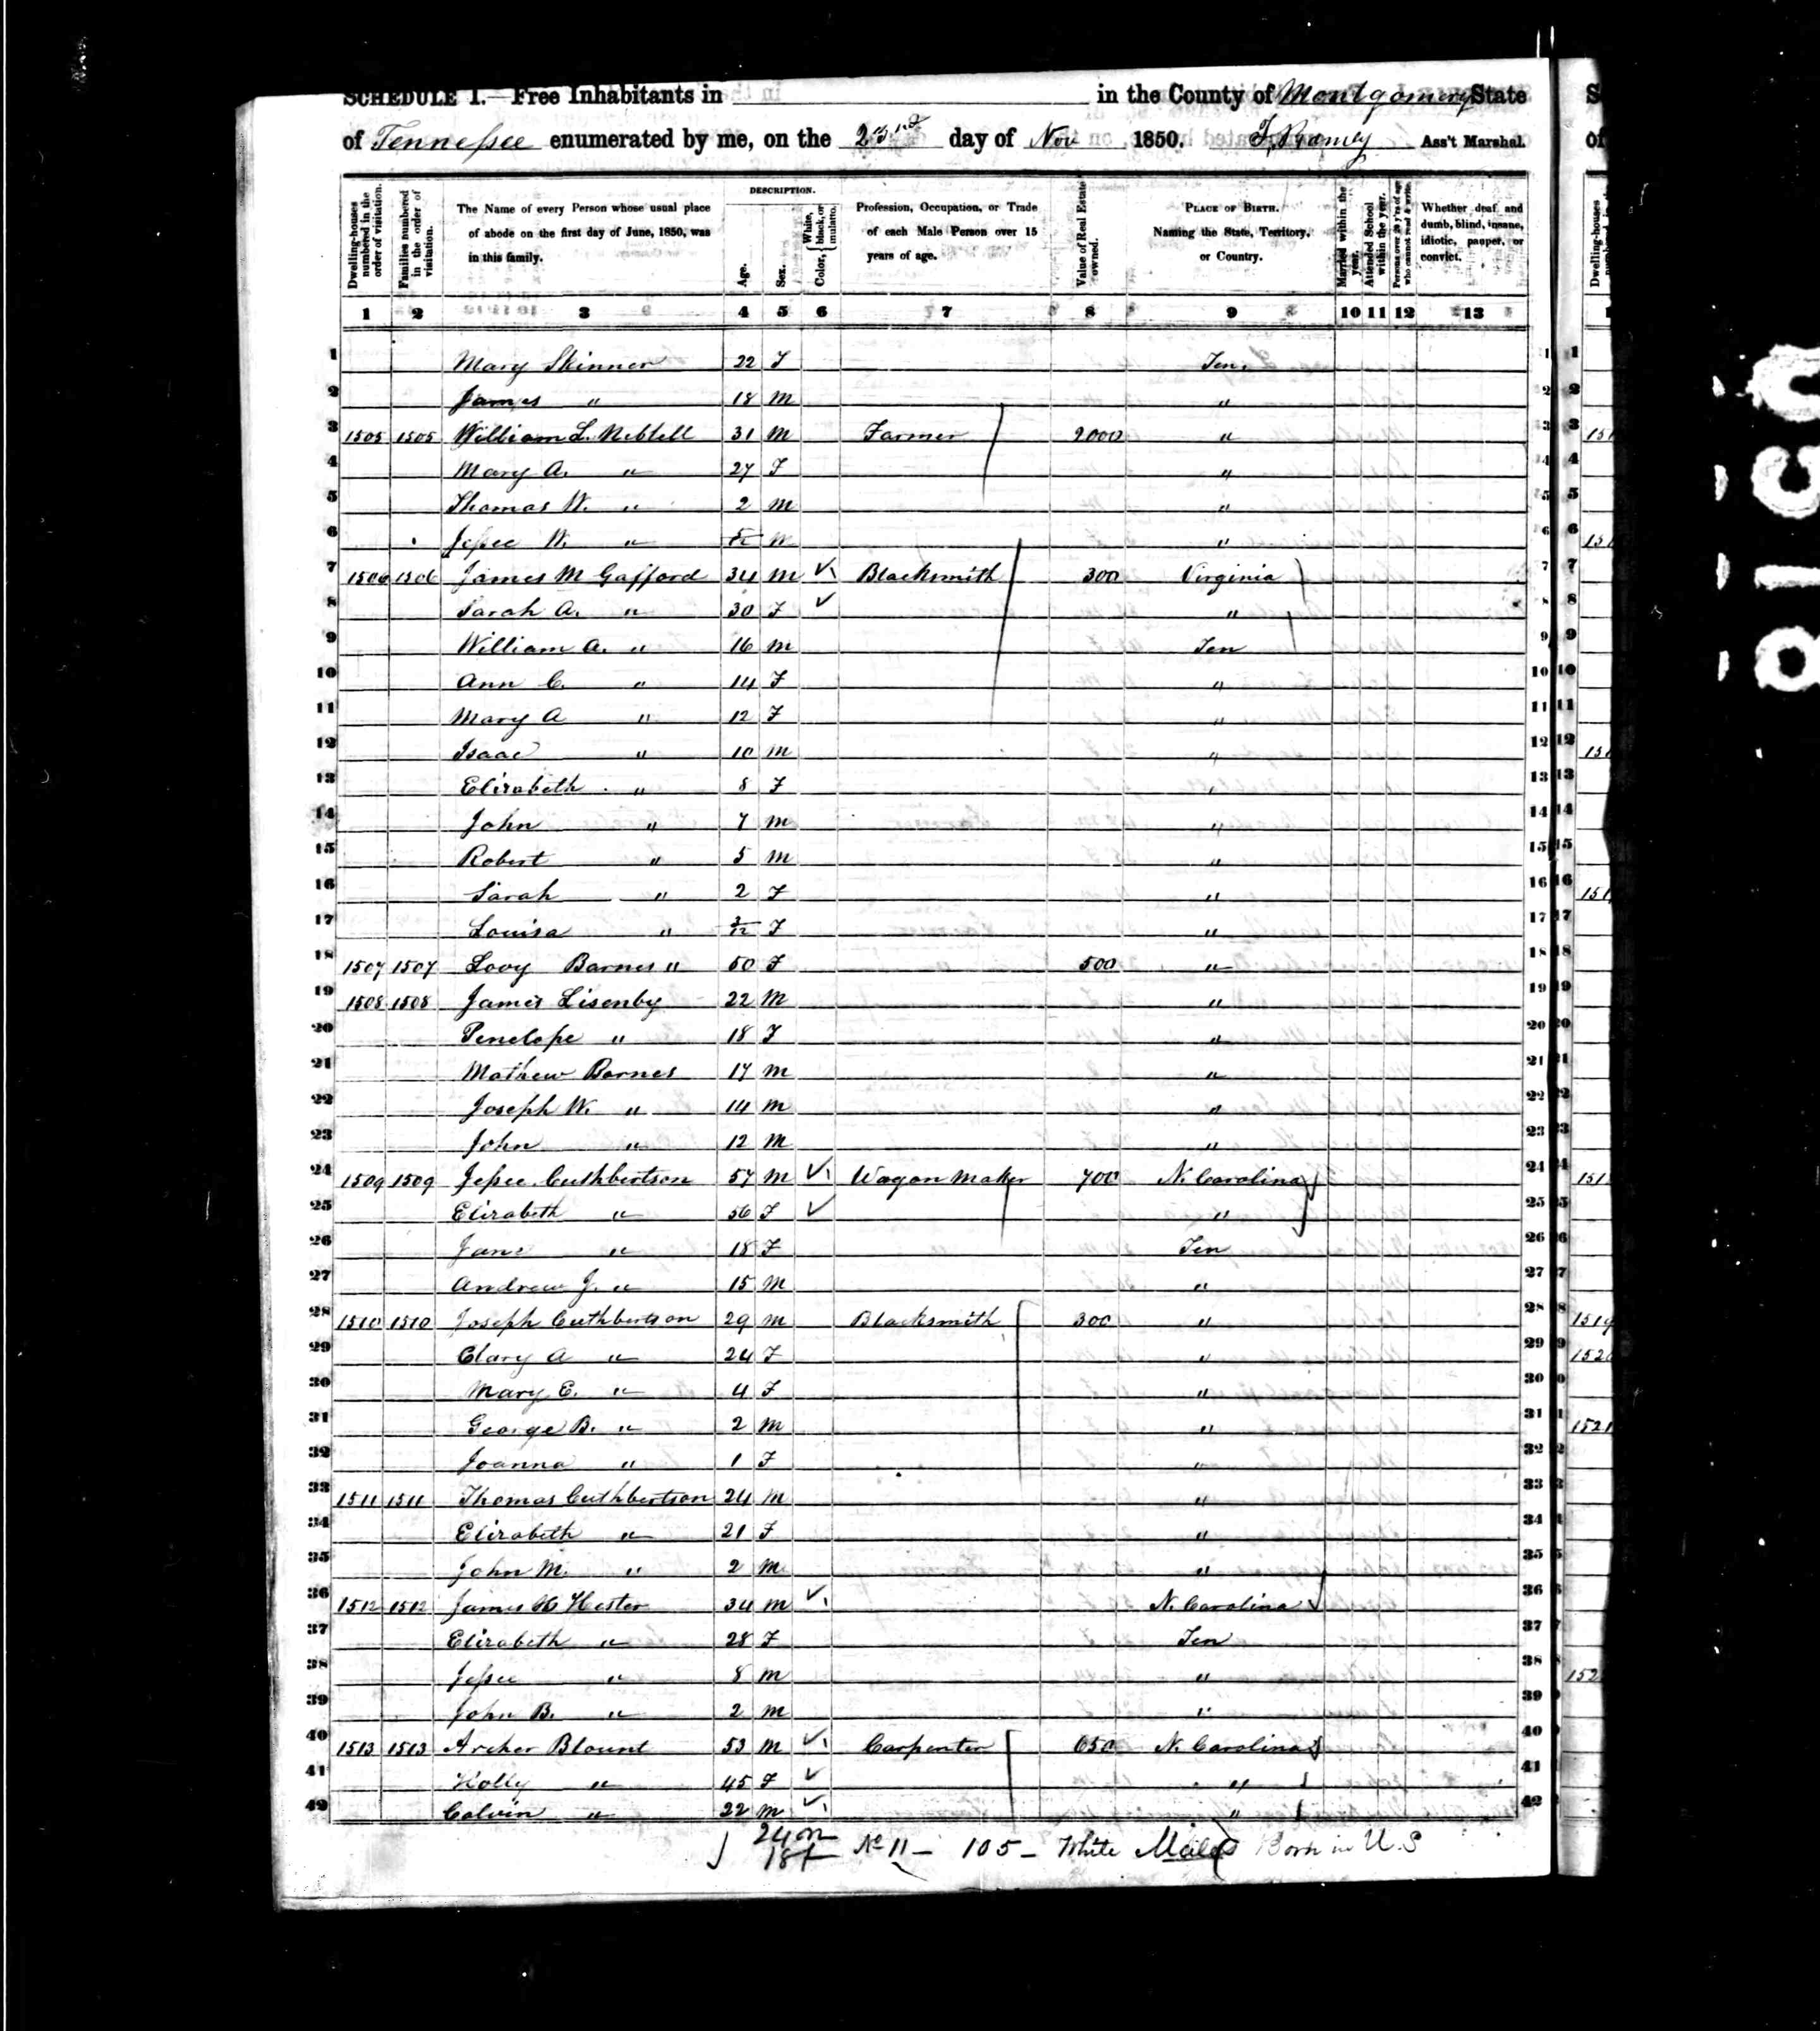 SCHEDULE I.—Free Inhabitants in in the County of Montgomery State
of Tennessee enumerated by me, on the day of Nov 1850. Ass't Marshal.
DESCRIPTION.
Dwelling-houses numbered in the order of visitation.
Families numbered in the order of visitation.
The Name of every Person whose usual place of abode on the first day of June, 1850, was in this family.
Age.
Sex.
Color, {White, black, or mulatto.
Profession, Occupation, or Trade of each Male Person over 15 years of age.
Value of Real Estate owned.
PLACE OF BIRTH. Naming the State, Territory, or Country.
Married within the year.
Attended School within the year.
Persons over 20 y'rs of age who cannot read & write.
Whether deaf and dumb, blind, insane, idiotic, pauper, or convict.
1 2 3 4 5 6 7 8 9 10 11 12 13
1 Mary Skinner 22 F Ten. 1
2 James " 18 m " 2
3 1505 1505 William L. Neblett 31 m Farmer 2000 " 3
4 Mary A. " 27 F " 4
5 Thomas W. " 2 m " 5
6 Jessee W. " " 6
7 1506 1506 James M Gafford 34 m ✓ Blacksmith 300 Virginia 7
8 Sarah A. " 30 F ✓ " 8
9 William A. " 16 m Ten 9
10 Ann C. " 14 F " 10
11 Mary A " 12 F " 11
12 Isaac " 10 m " 12
13 Elizabeth " 8 F " 13
14 John " 7 m " 14
15 Robert " 5 m " 15
16 Sarah " 2 F " 16
17 Louisa " 3/12 F " 17
18 1507 1507 Lovy Barnes " 50 F 500 " 18
19 1508 1508 James Lisenby 22 m " 19
20 Penelope " 18 F " 20
21 Mathew Barnes 17 m " 21
22 Joseph W. " 14 m " 22
23 John " 12 m " 23
24 1509 1509 Jessee Cuthbertson 57 m ✓ Wagon Maker 700 N. Carolina 24
25 Elizabeth " 56 F ✓ " 25
26 Jane " 18 F Ten 26
27 Andrew J. " 15 m " 27
28 1510 1510 Joseph Cuthbertson 29 m Blacksmith 300 " 28
29 Clary A " 24 F " 29
30 Mary E. " 4 F " 30
31 George B. " 2 m " 31
32 Joanna " 1 F " 32
33 1511 1511 Thomas Cuthbertson 24 m " 33
34 Elizabeth " 21 F " 34
35 John M. " 2 m " 35
36 1512 1512 James Hester 34 m ✓ N. Carolina 36
37 Elizabeth " 28 F Ten 37
38 Jessee " 8 m " 38
39 John B. " 2 m " 39
40 1513 1513 Archer Blount 53 m ✓ Carpenter 650 N. Carolina 40
41 Holly " 45 F ✓ " 41
42 Calvin " 22 m ✓ " 42
24 m
18 f No 11 – 105 – White Males Born in U.S